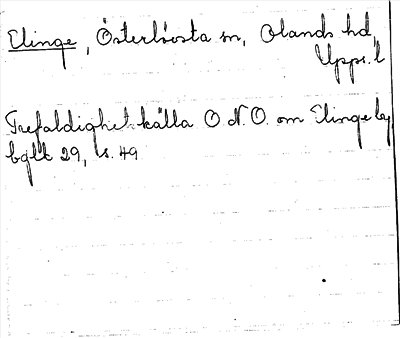 Elinge, Österlövsta sn, Olands hd,
Upps. l
Trefaldighetskälla O N.O. om Elinge by
bglt 29, s. 49